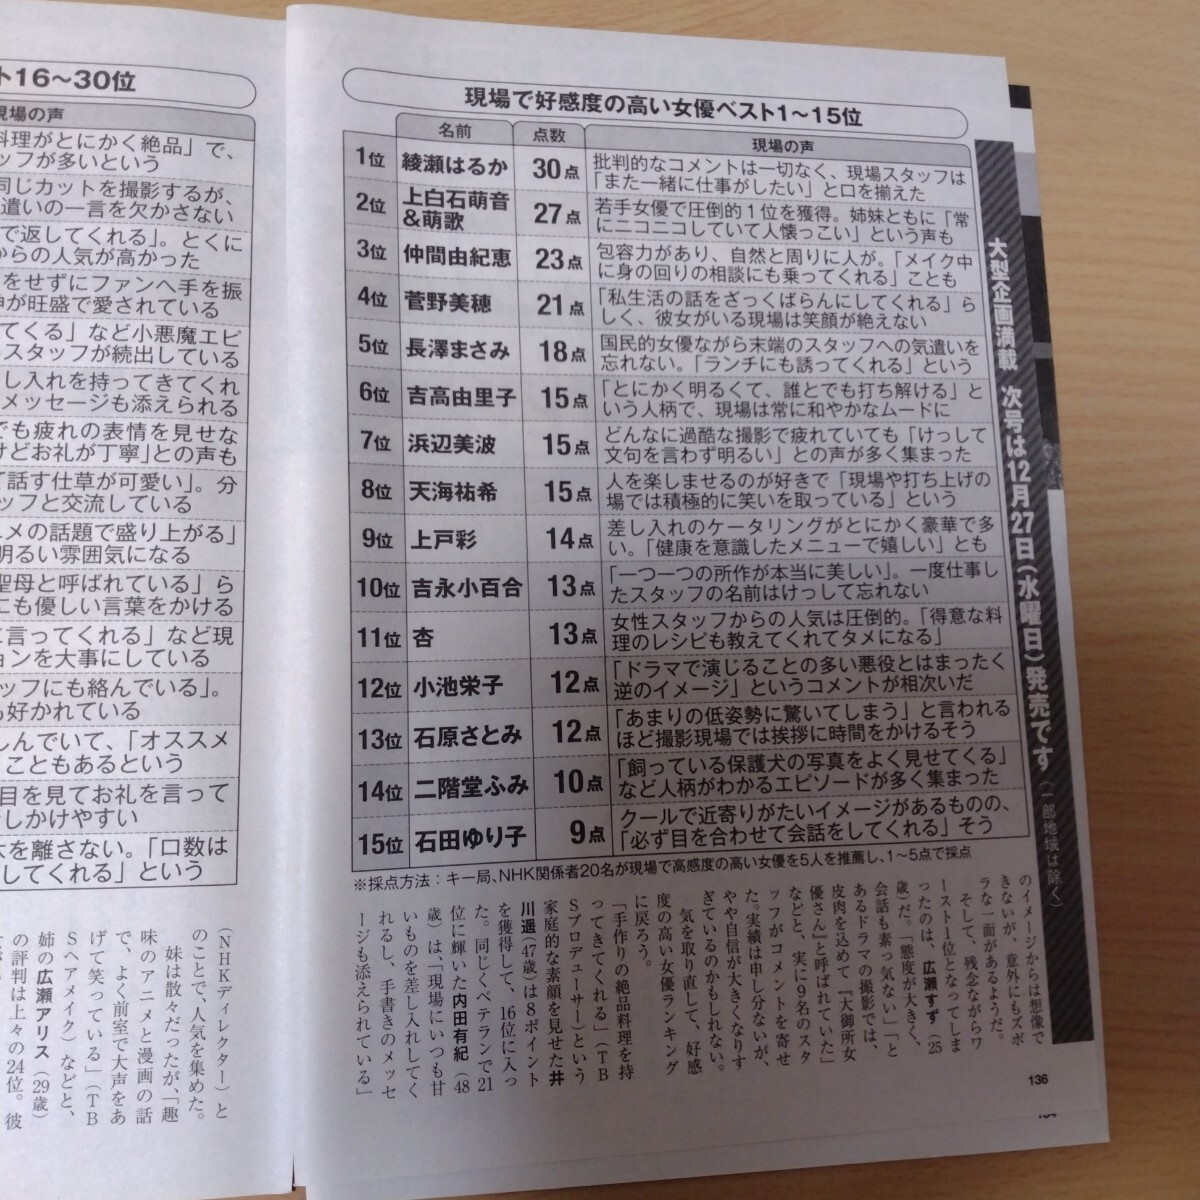 現場で好感度の高い女優ベスト1〜15位
名前 点数 現場の声
1位 綾瀬はるか 30点 批判的なコメントは一切なく、現場スタッフは
「また一緒に仕事がしたい」と口を揃えた
2位 上白石萌音&萌歌 27点 若手女優で圧倒的1位を獲得。姉妹ともに「常
にニコニコしていて人懐っこい」という声も
3位 仲間由紀恵 23点 包容力があり、自然と周りに人が。「メイク中
に身の回りの相談にも乗ってくれる」ことも
4位 菅野美穂 21点 「私生活の話をざっくばらんにしてくれる」ら
しく、彼女がいる現場は笑顔が絶えない
5位 長澤まさみ 18点 国民的女優ながら末端のスタッフへの気遣いを
忘れない。「ランチにも誘ってくれる」という
6位 吉高由里子 15点 「とにかく明るくて、誰とでも打ち解ける」と
いう人柄で、現場は常に和やかなムードに
7位 浜辺美波 15点 どんなに過酷な撮影で疲れていても「けっして
文句を言わず明るい」との声が多く集まった
8位 天海祐希 15点 人を楽しませるのが好きで「現場や打ち上げの
場では積極的に笑いを取っている」という
9位 上戸彩 14点 差し入れのケータリングがとにかく豪華で多
い。「健康を意識したメニューで嬉しい」とも
10位 吉永小百合 13点 「一つ一つの所作が本当に美しい」。一度仕事し
たスタッフの名前はけっして忘れない
11位 杏 13点 女性スタッフからの人気は圧倒的。「得意な料
理のレシピも教えてくれてタメになる」
12位 小池栄子 12点 「ドラマで演じることの多い悪役とはまったく
逆のイメージ」というコメントが相次いだ
13位 石原さとみ 12点 「あまりの低姿勢に驚いてしまう」と言われる
ほど撮影現場では挨拶に時間をかけるそう
14位 二階堂ふみ 10点 「飼っている保護犬の写真をよく見せてくる」
など人柄がわかるエピソードが多く集まった
15位 石田ゆり子 9点 クールで近寄りがたいイメージがあるものの、
「必ず目を合わせて会話をしてくれる」そう
※採点方法:キー局、NHK関係者20名が現場で高感度の高い女優を5人を推薦し、1〜5点で採点
大型企画満載 次号は12月27日(水曜日)発売です(一部地域は除く)
のイメージからは想像で
きないが、意外にもズボ
ラな一面があるようだ。
そして、残念ながらワ
ースト1位となってしま
ったのは、広瀬すず(25
歳)だ。「態度が大きく、
会話も素っ気ない」」と
あるドラマの撮影では、
皮肉を込めて『大御所女
優さん』と呼ばれていた」
などと、実に9名のスタ
ッフがコメントを寄せ
た。実績は申し分ないが、
やや自信が大きくなりす
ぎているのかもしれない。
気を取り直して、好感
度の高い女優ランキング
に戻ろう。
「手作りの絶品料理を持
ってきてくれる」(TB
Sプロデューサー)という
家庭的な素顔を見せた井
川遥(47歳)は8ポイント
を獲得して、16位に入っ
た。同じくベテランで21
位に輝いた内田有紀(48
歳)は、「現場にいつも甘
いものを差し入れしてく
れるし、手書きのメッセ
ージも添えられている」
136
ト16〜30位
現場の声
料理がとにかく絶品」で、
タッフが多いという
同じカットを撮影するが、
遣いの一言を欠かさない
で返してくれる」。とくに
からの人気が高かった
をせずにファンへ手を振
神が旺盛で愛されている
てくる」など小悪魔エピ
スタッフが続出している
し入れを持ってきてくれ
メッセージも添えられる
でも疲れの表情を見せな
けどお礼が丁寧」との声も
て話す仕草が可愛い」。分
ッフと交流している
ニメの話題で盛り上がる」
明るい雰囲気になる
聖母と呼ばれている」ら
にも優しい言葉をかける
に言ってくれる」など現
ョンを大事にしている
ッフにも絡んでいる」。
も好かれている
しんでいて、「オススメ
こともあるという
目を見てお礼を言って
しかけやすい
を離さない。「口数は
してくれる」という
(NHKディレクター)と
のことで、人気を集めた。
妹は散々だったが、「趣
味のアニメと漫画の話
で、よく前室で大声をあ
げて笑っている」(TB
Sヘアメイク)などと、
姉の広瀬アリス(29歳)
の評判は上々の24位。彼